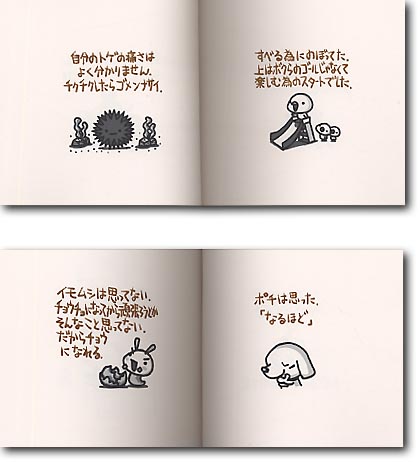 自分のトゲの痛さは
よく分かりません.
チクチクしたらゴメンナサイ.
すべる為にのぼってた.
上はボクらのゴールじゃなくて
楽しむ為のスタートでした.
イモムシは思ってない.
チョウチョになってから頑張ろうとか
そんなこと思ってない.
だからチョウ
になれる.
ポチは思った.
「なるほど」